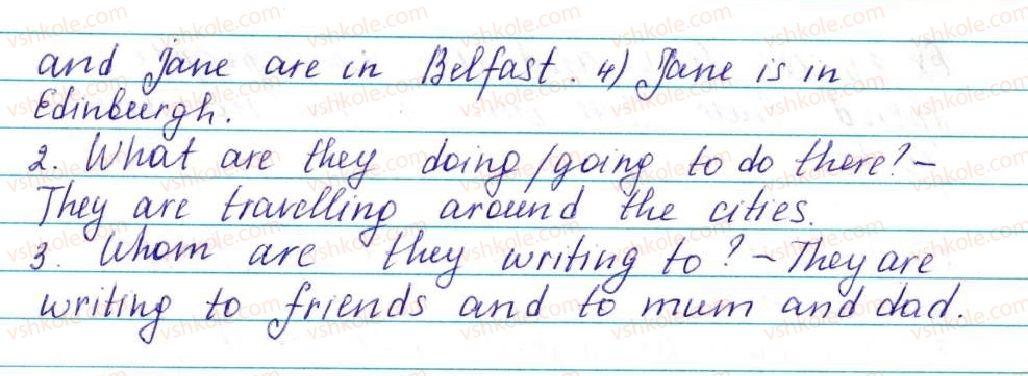 and Jane are in Belfast. 4) Jane is in
Edinburgh.
2. What are they doing/going to do there? –
They are travelling around the cities.
3. Whom are they writing to? – They are
writing to friends and to mum and dad.